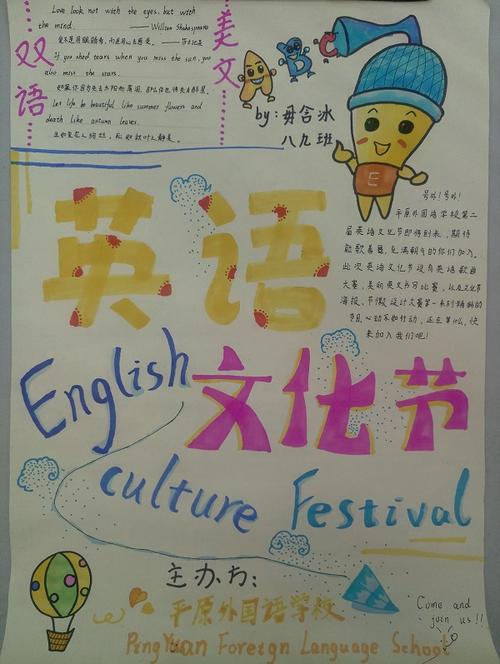 双语
美文
Love look not with the eyes, but with
the mind. —— William Shakespeare
爱不是用眼睛看，而是用心去感受。——莎士比亚
If you shed tears when you miss the sun, you
also miss the stars.
Let life be beautiful like summer flowers and
death like autumn leaves.
生如夏花之绚丽，死如秋叶之静美。
A B C
by：毋含冰
八九班
E
号外！号外！
平原外国语学校第二
届英语文化节即将到来，期待
能歌善舞，充满朝气的你们加入。
此次英语文化节设有英语歌曲
大赛，美丽英文书写比赛，以及文化节
海报、节徽设计大赛等一系列精彩的
节目，心动不如行动，还在等什么，快
来加入我们吧！
英语
English
文化节
culture Festival
主办方：
平原外国语学校
PingYuan Foreign Language School
Come and
join us!!